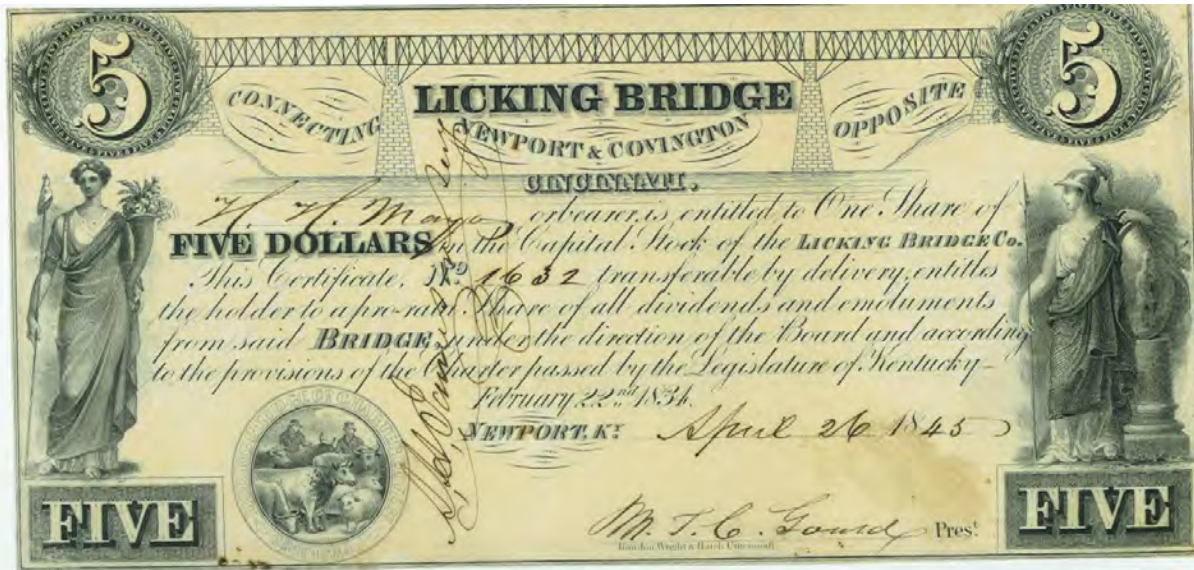 5 5
LICKING BRIDGE
CONNECTING NEWPORT & COVINGTON OPPOSITE
CINCINNATI.
H. H. Mayo or bearer, is entitled to One Share of
FIVE DOLLARS in the Capital Stock of the LICKING BRIDGE Co.
This Certificate, No. 1632 transferable by delivery, entitles
the holder to a pro-rata Share of all dividends and emoluments
from said BRIDGE under the direction of the Board and according
to the provisions of the Charter passed by the Legislature of Kentucky
February 22nd 1834.
NEWPORT, Ky. April 26 1845
M. T. C. Gould Prest.
FIVE FIVE